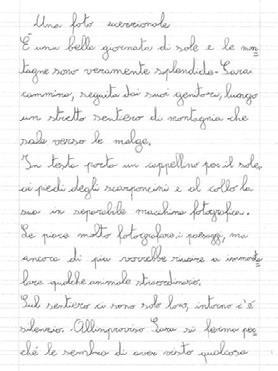 Una foto eccezionale
È una bella giornata di sole e le mon
tagne sono veramente splendide. Sara
cammina, seguita dai suoi genitori, lungo
un stretto sentiero di montagna che
sale verso le malge.
In testa porta un cappellino per il sole,
ai piedi degli scarponcini e al collo la
sua inseparabile macchina fotografica.
Le piace molto fotografare i paesaggi, ma
ancora di più vorrebbe riuscire a immorta
lare qualche animale straordinario.
Sul sentiero ci sono solo loro, intorno c'è
silenzio. All'improvviso Sara si ferma per
ché le sembra di aver visto qualcosa